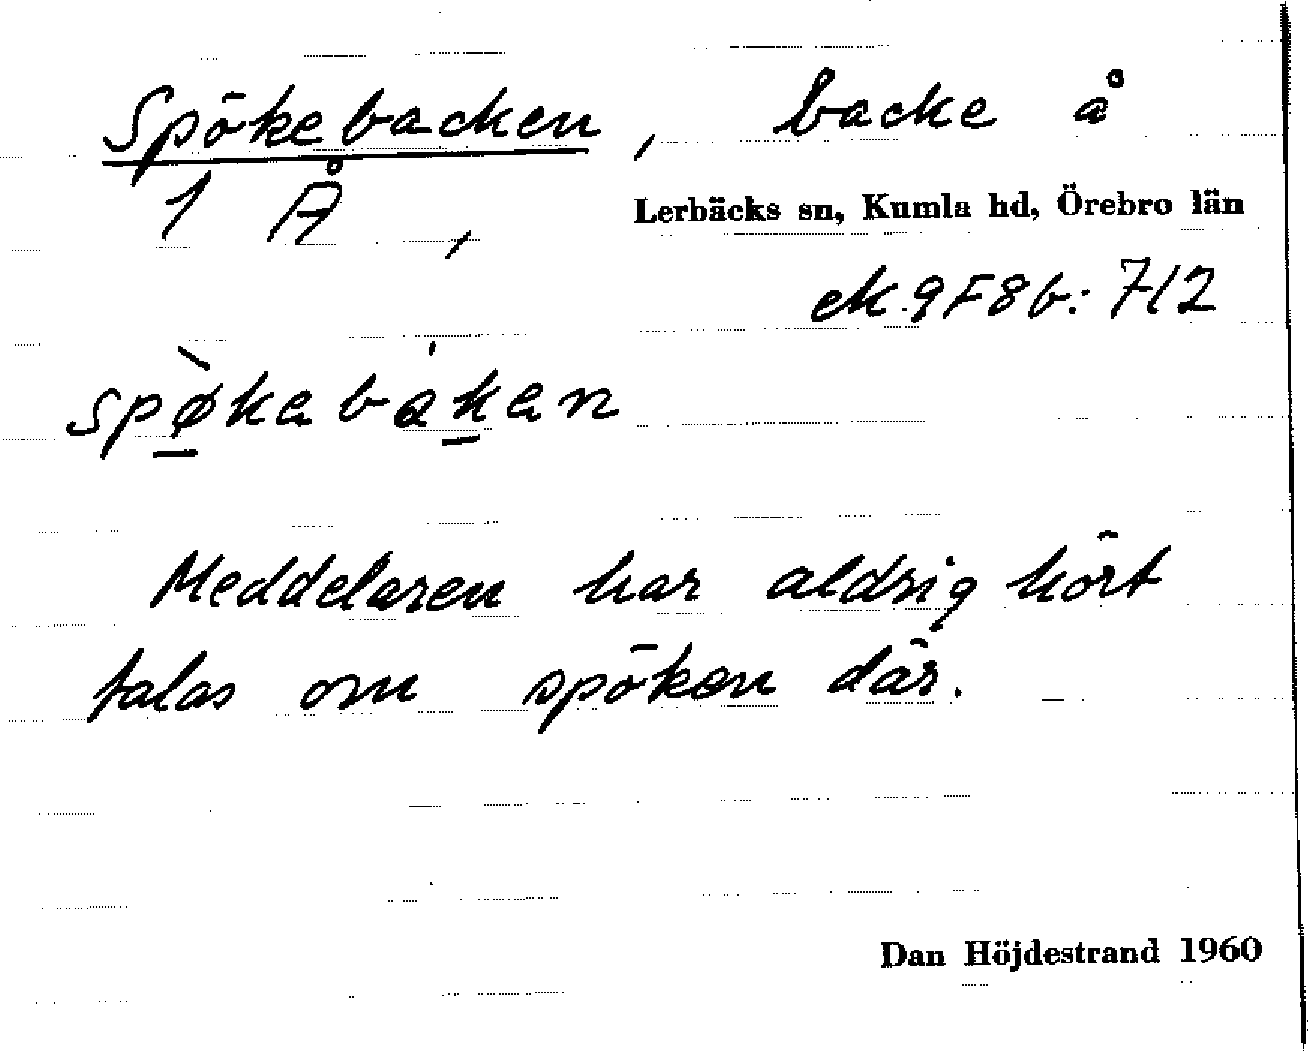 Spökebacken, backe å
1 Å,
Lerbäcks sn, Kumla hd, Örebro län
ek. 9F8b: 712
spø̀kabákan
Meddelaren har aldrig hört
talas om spöken där.
Dan Höjdestrand 1960